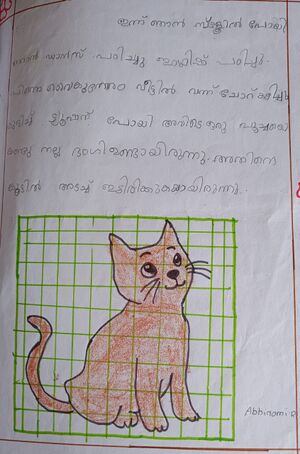 ഇന്ന് ഞാൻ സ്കൂളിൽ പോയി
ഞാൻ ഡാൻസ് പഠിച്ചു പഠിച്ചു.
പിന്നെ വൈകുന്നേരം വീട്ടിൽ വന്ന് ചോറ് കഴിച്ചു
ട്യൂഷന് പോയി അവിടെ ഒരു പൂച്ചയെ
കണ്ടു നല്ല ഭംഗി ഉണ്ടായിരുന്നു. അതിനെ
കൂട്ടിൽ അടച്ച് ഇട്ടിരിക്കുകയായിരുന്നു.
Abhirami